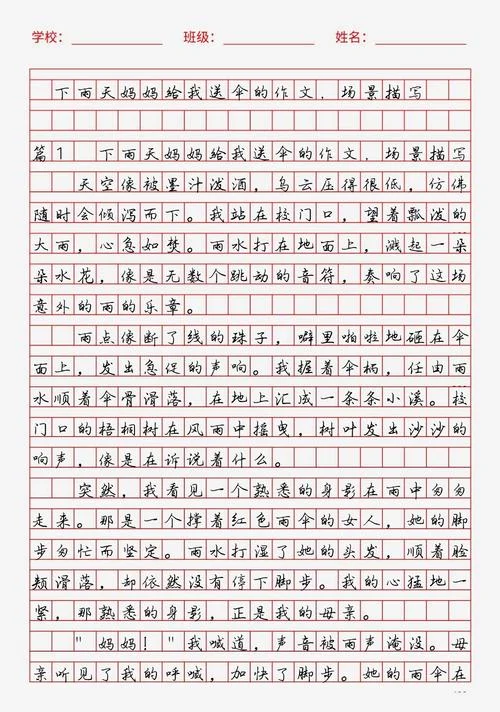 学校： 班级： 姓名：
下雨天妈妈给我送伞的作文，场景描写
篇1 下雨天妈妈给我送伞的作文，场景描写
天空像被墨汁泼洒，乌云压得很低，仿佛
随时会倾泻而下。我站在校门口，望着瓢泼的
大雨，心急如焚。雨水打在地面上，溅起一朵
朵水花，像是无数个跳动的音符，奏响了这场
意外的雨的乐章。
雨点像断了线的珠子，噼里啪啦地砸在伞
面上，发出急促的声响。我握着伞柄，任由雨
水顺着伞骨滑落，在地上汇成一条条小溪。校
门口的梧桐树在风雨中摇曳，树叶发出沙沙的
响声，像是在诉说着什么。
突然，我看见一个熟悉的身影在雨中匆匆
走来。那是一个撑着红色雨伞的女人，她的脚
步匆忙而坚定。雨水打湿了她的头发，顺着脸
颊滑落，却依然没有停下脚步。我的心猛地一
紧，那熟悉的身影，正是我的母亲。
"妈妈！"我喊道，声音被雨声淹没。母
亲听见了我的呼喊，加快了脚步。她的雨伞在